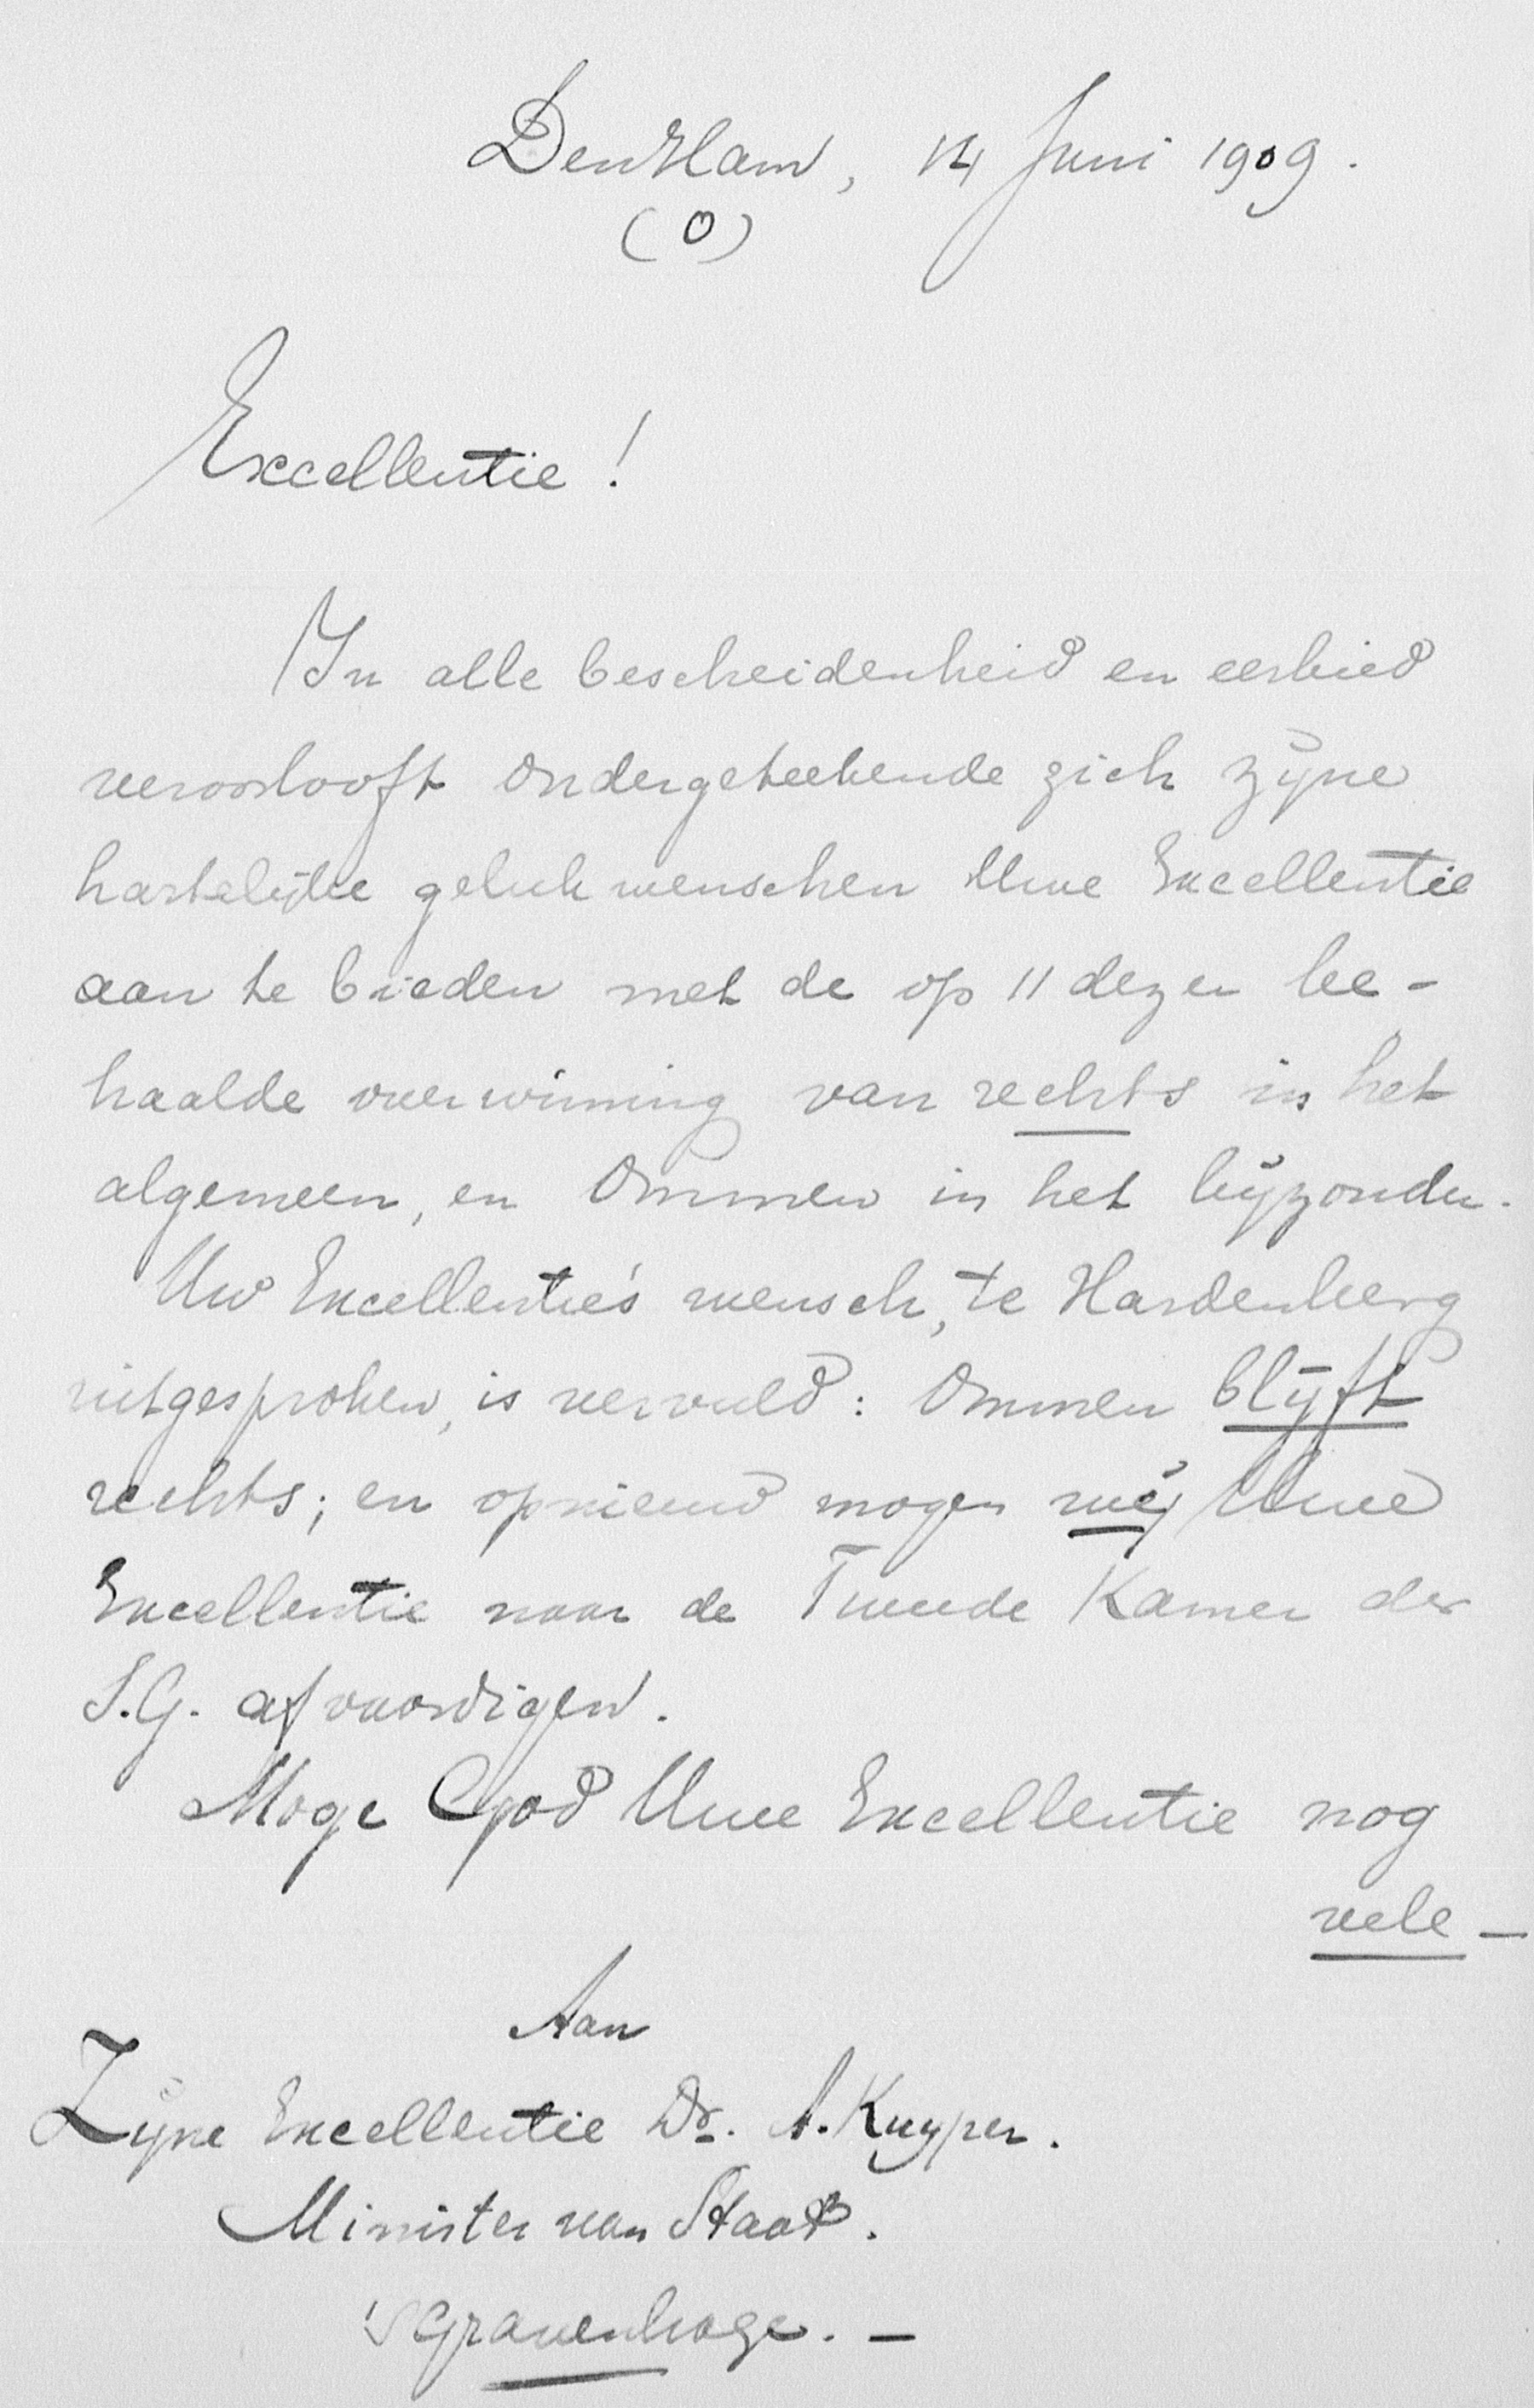 Den Ham, 14 Juni 1909.
(O)
Excellentie!
In alle bescheidenheid en eerbied
veroorlooft ondergeteekende zich zijne
hartelijke gelukwenschen Uwe Excellentie
aan te bieden met de op 11 dezer be-
haalde overwinning van rechts in het
algemeen, en Ommen in het bijzonder.
Uw Excellentie's wensch, te Hardenberg
uitgesproken, is vervuld: Ommen blijft
rechts; en opnieuw mogen wij Uwe
Excellentie naar de Tweede Kamer der
S.G. afvaardigen.
Moge God Uwe Excellentie nog
vele -
Aan
Zijne Excellentie Dr. A. Kuyper.
Minister van Staat.
'S Gravenhage. -